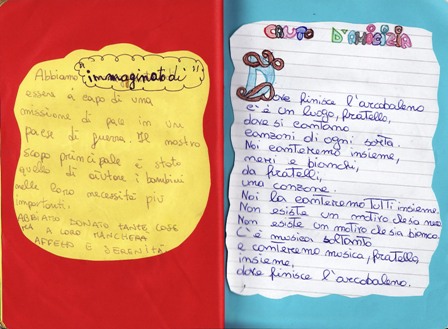 Abbiamo "immaginato di"
essere a capo di una
missione di pace in un
paese di guerra. Il nostro
scopo principale è stato
quello di aiutare i bambini
nelle loro necessità più
importanti.
ABBIAMO DONATO TANTE COSE
MA A LORO MANCHERÀ
AFFETTO E SERENITÀ
CANTO D'AMICIZIA
Dove finisce l'arcobaleno
c'è un luogo, fratello,
dove si cantano
canzoni di ogni sorta.
Noi canteremo insieme,
neri e bianchi,
da fratelli,
una canzone.
Noi la canteremo tutti insieme.
Non esiste un motivo che sia nero
Non esiste un motivo che sia bianco.
C'è musica soltanto
e canteremo musica, fratello
insieme,
dove finisce l'arcobaleno.